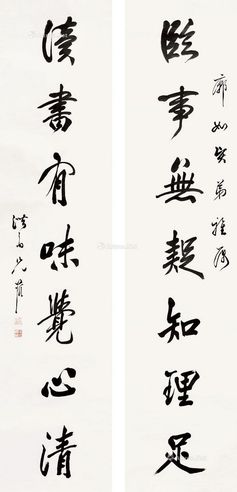 廓如贤弟雅属
臨事無疑知理足
讀書有味覺心清